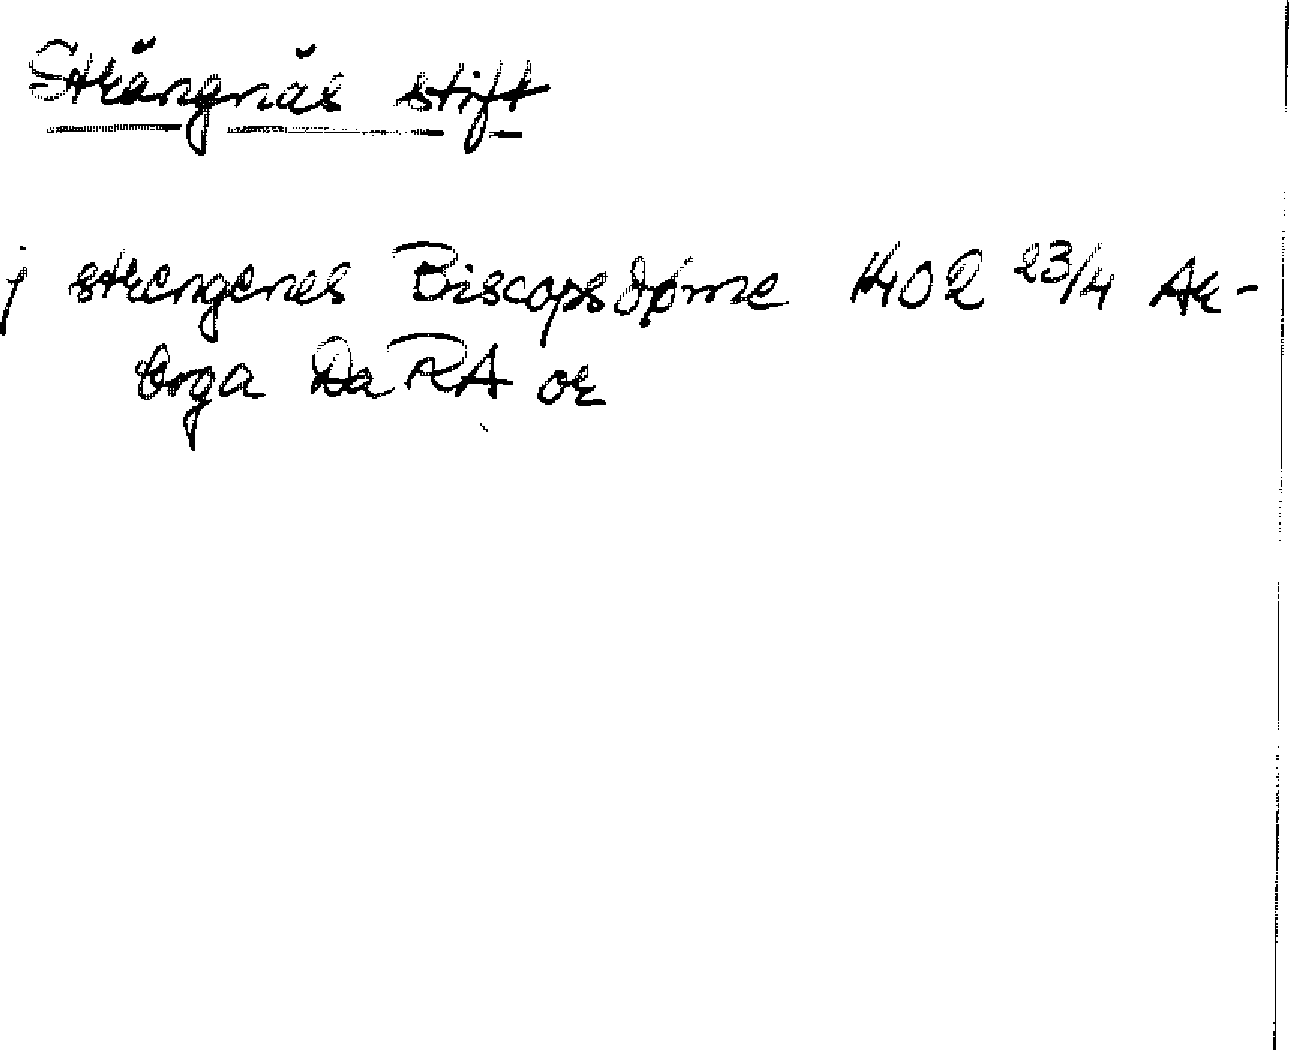 Strängnäs stift
j strengenes Biscopsdøme 1402 23/4 Ar-
borga Da RA or